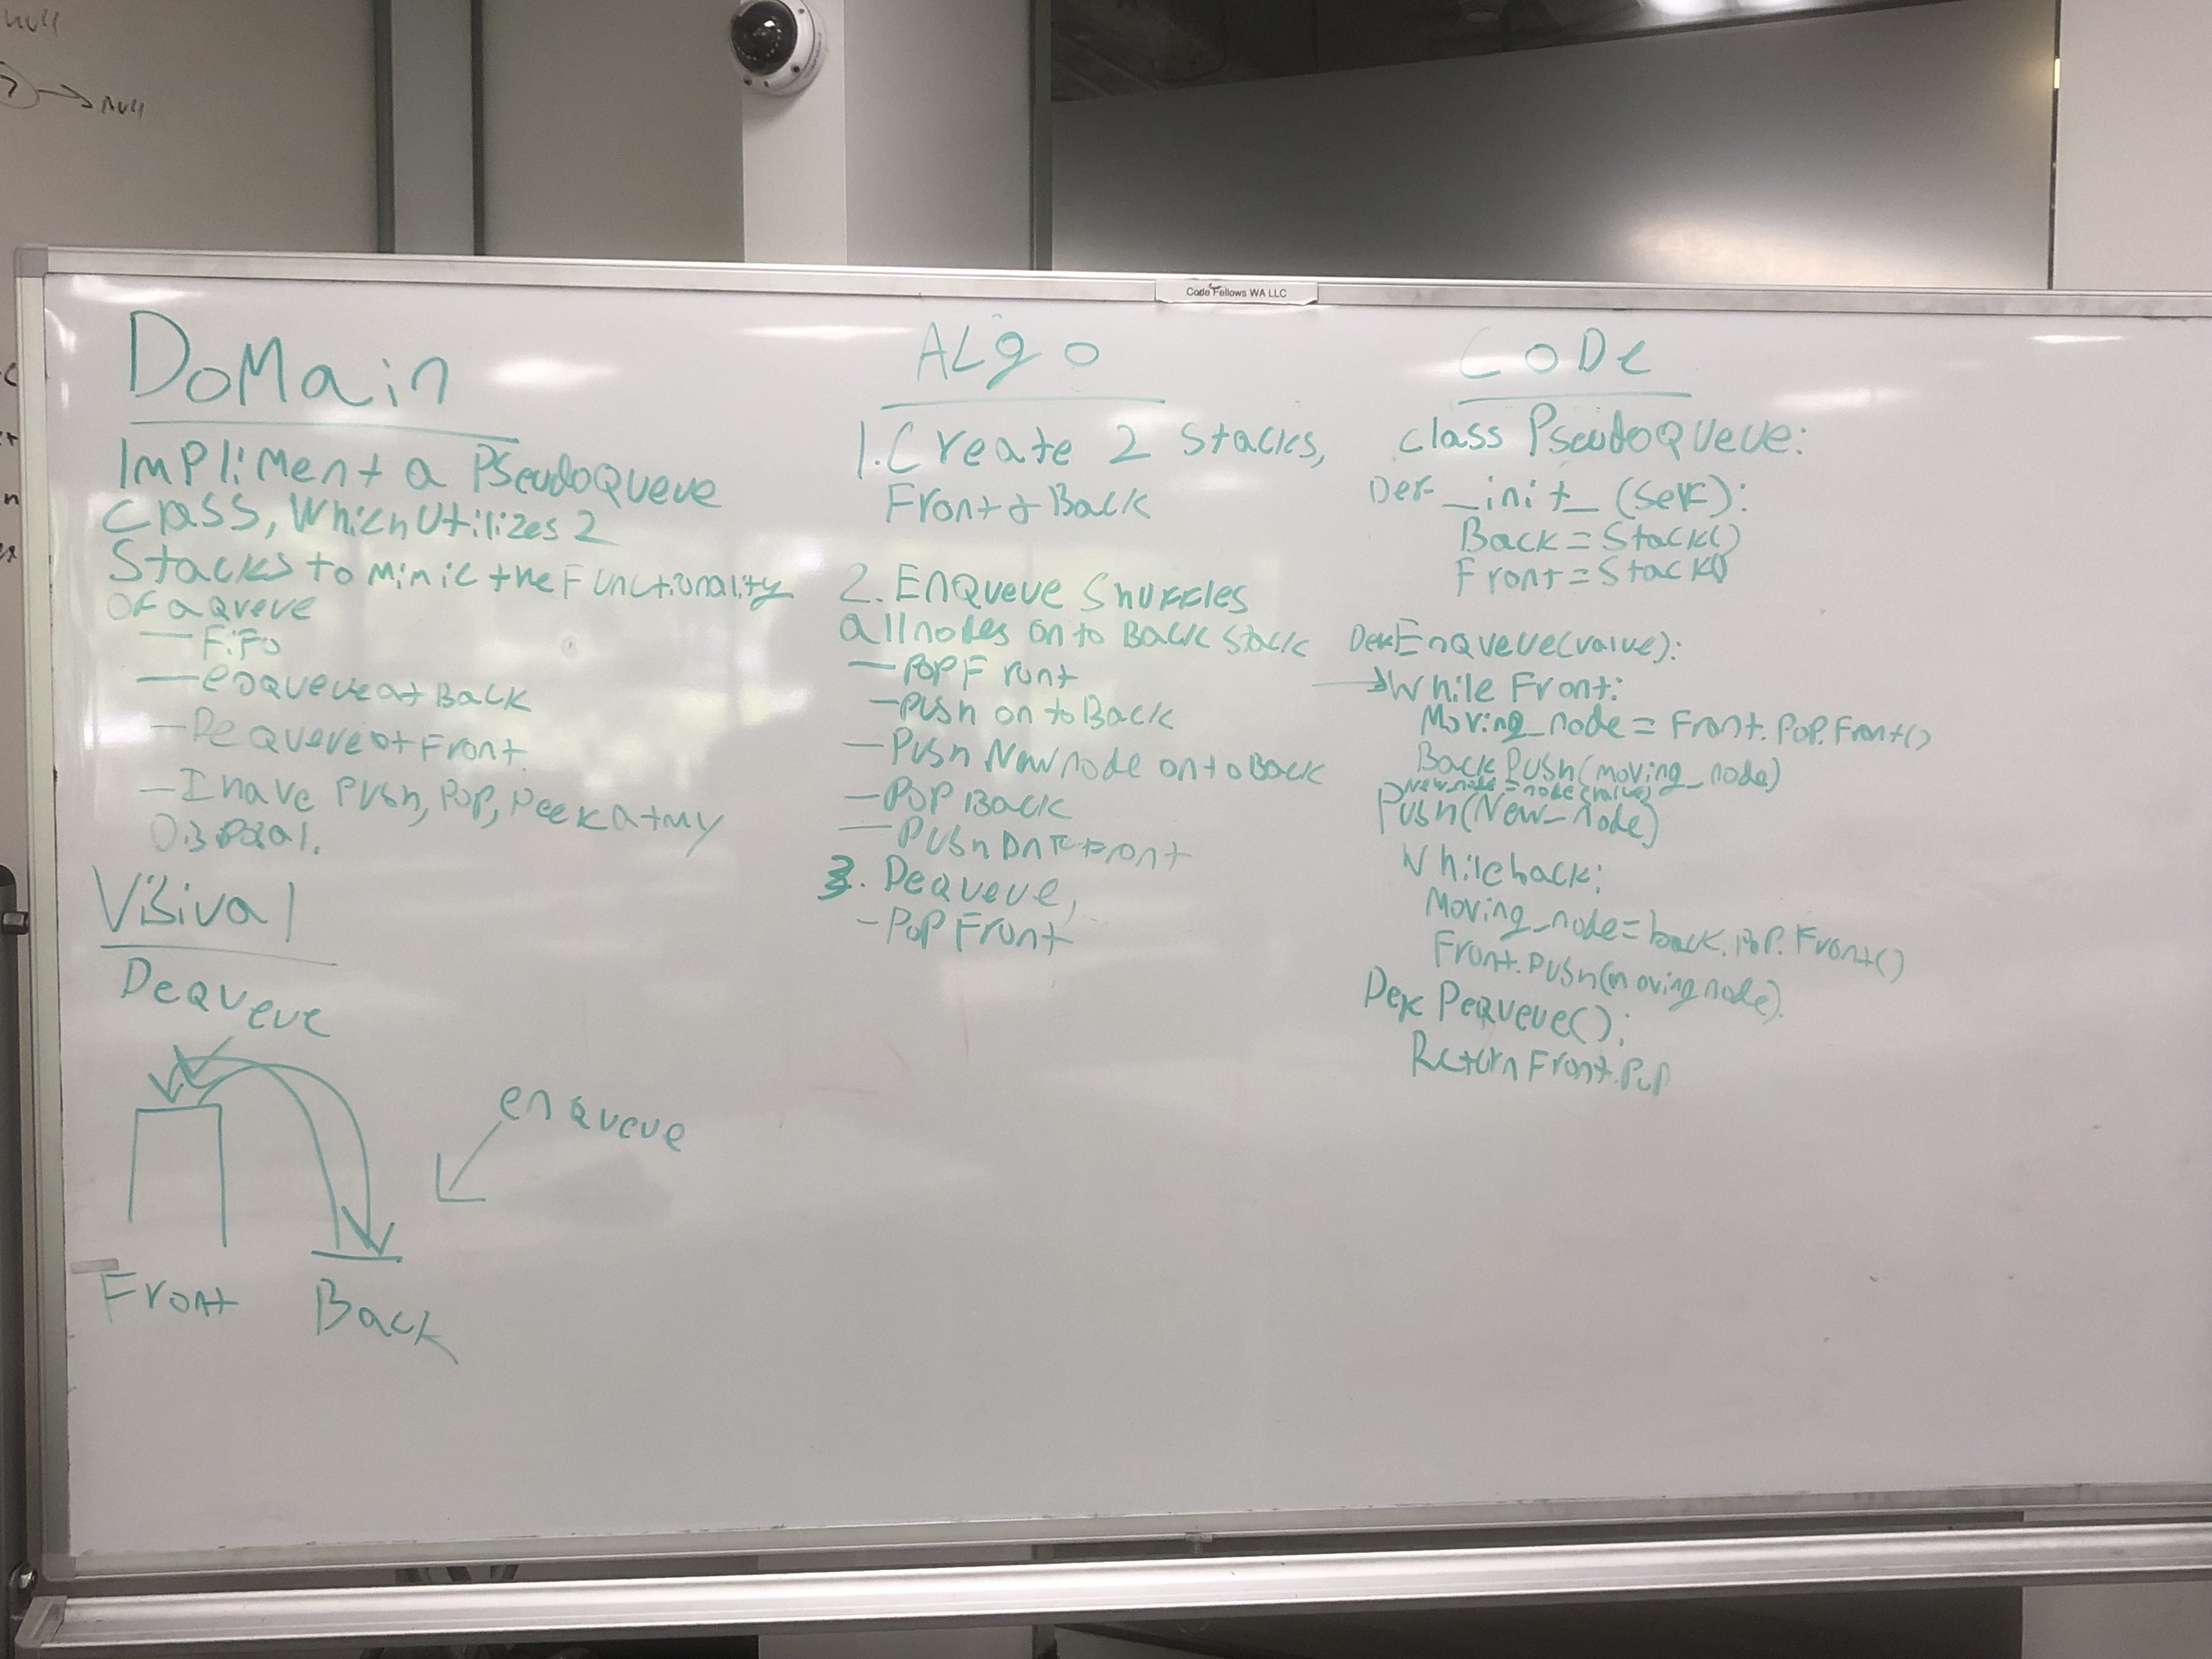 null
null
Code Fellows WA LLC
DoMain
Impliment a PseudoQueue
Class, Which Utilizes 2
Stacks to Mimic the Functionality
OF a Queue
— FiFo
— enqueue at Back
— Dequeue at Front
— I have Push, Pop, Peek at my
Disposal.
Visual
Dequeue
enqueue
Front
Back
ALgo
1. Create 2 Stacks,
Front & Back
2. EnQueue Shuffles
all nodes on to Back Stack
— POP Front
— Push on to Back
— Push New node onto Back
— POP Back
— Push onto Front
3. Dequeue,
- PoP Front
CoDe
class PseudoQueue:
Def _init_ (self):
Back = Stack()
Front = Stack()
Def EnQueue(value):
While Front:
Moving_node = Front.POP.Front()
Back Push(moving_node)
New_node = node(value)
Push(New_node)
While back:
Moving_node = back.POP.Front()
Front.Push(moving node).
Def Dequeue():
Return Front.PoP